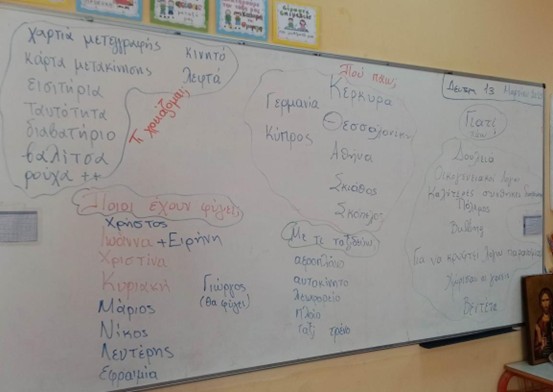 χαρτιά μετεγγραφής
κινητό
κάρτα μετακίνησης
λεφτά
εισιτήρια
Ταυτότητα
διαβατήριο
βαλίτσα
ρούχα ++
Τι χρειάζομαι;
Πού πάω;
Κέρκυρα
Γερμανία
Θεσσαλονίκη
Κύπρος
Αθήνα
Σκιάθος
Σκόπελος
Δευτέρα 13 Μαρτίου
Γιατί
Δουλειά
Οικογενειακοί λόγοι
Καλύτερες συνθήκες διαβίωσης
Πόλεμος
Για να κρυφτεί λόγω παρανομίας
Χώρισαν οι γονείς
Βεντέτα
Ποιοι έχουν φύγει;
Χρήστος
Ιωάννα + Ειρήνη
Χριστίνα
Κυριακή
Μάριος
Νίκος
Λευτέρης
Εφραιμία
Γιώργος
(θα φύγει)
Με τι ταξιδεύω;
αεροπλάνο
αυτοκίνητο
λεωφορείο
πλοίο
ταξί τρένο